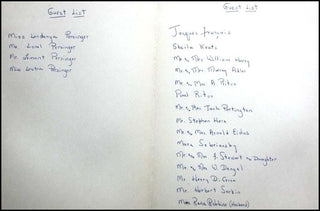 Guest List
Miss Perzinger
Mr. Lionel Perzinger
Mr. Vincent Perzinger
Miss Perzinger
Guest List
Jacques Français
Sheila Keats
Mr. & Mrs William
Mr. & Mrs. Murray Adler
Mr. & Mrs A Pitus
Paul Pitus
Mr. & Mrs Jack Partington
Mr. Stephen Hero
Mr. & Mrs Arnold Eidus
Mara Sebriansky
Mr. & Mrs. J. Stewart & Daughter
Mr. & Mrs W. Dengel
Mr. Henry Di Cecco
Mr. Herbert Sorkin
Rena Robbins (Husband)